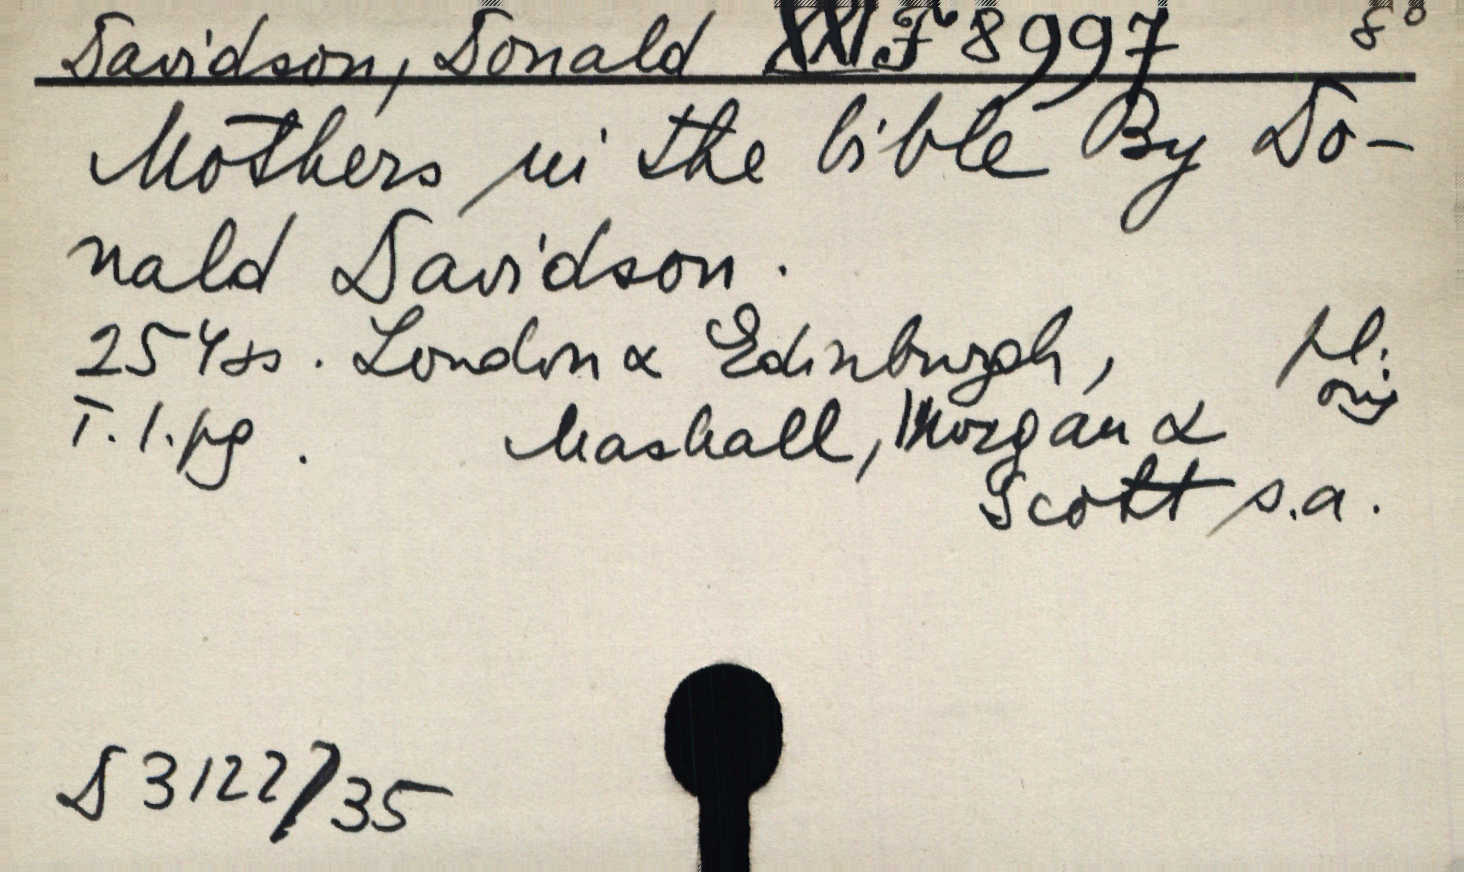 Davidson, Donald XXI.F 8997 8°
Mothers in the bible By Do-
nald Davidson.
254 ss. London & Edinburgh, Pl.
T. 1. pg. Mashall, Morgan & orig
Scott s.a.
D 3122/35